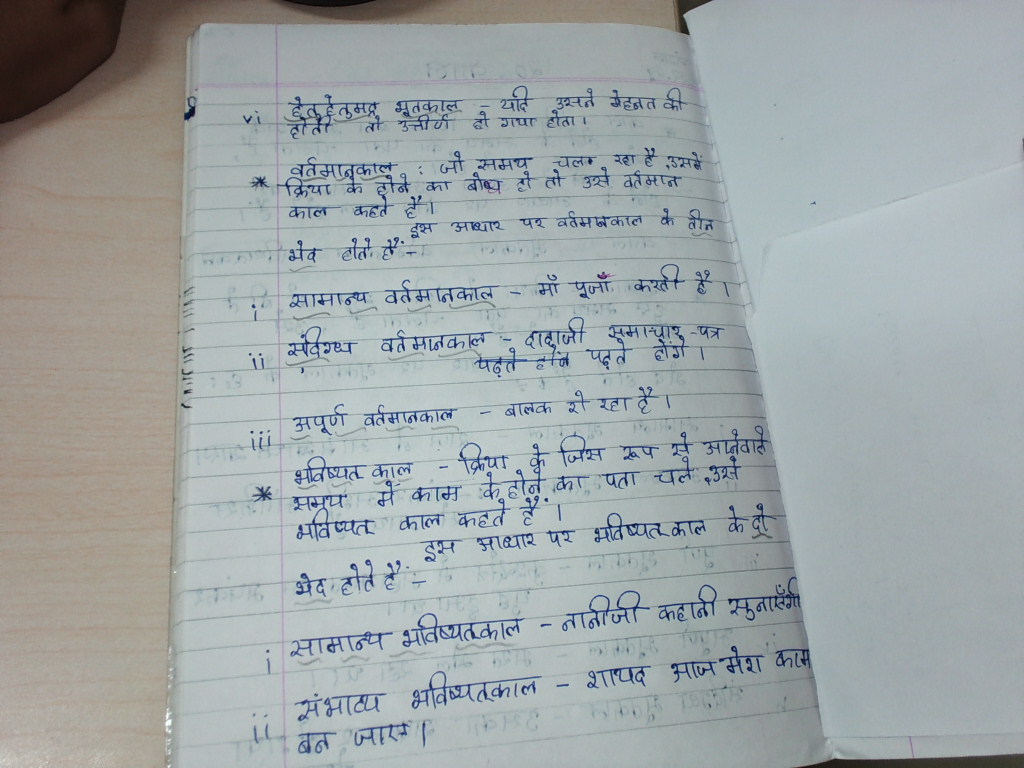 vi हेतुहेतुमद् भूतकाल - यदि उसने मेहनत की
होती तो उत्तीर्ण हो गया होता।
वर्तमानकाल : जो समय चल रहा है उसमें
* क्रिया के होने का बोध हो तो उसे वर्तमान
काल कहते हैं।
इस आधार पर वर्तमानकाल के तीन
भेद होते हैं:-
i सामान्य वर्तमानकाल - माँ पूजा करती है।
ii संदिग्ध वर्तमानकाल - दादाजी समाचार-पत्र
पढ़ते होंन पढ़ते होंगे।
iii अपूर्ण वर्तमानकाल - बालक रो रहा है।
भविष्यत काल - क्रिया के जिस रूप से आनेवाले
* समय में काम के होने का पता चले उसे
भविष्यत काल कहते हैं।
इस आधार पर भविष्यतकाल के दो
भेद होते हैं:-
i सामान्य भविष्यतकाल - नानीजी कहानी सुनाएँगी
ii संभाव्य भविष्यतकाल - शायद आज मेरा काम
बन जाए।